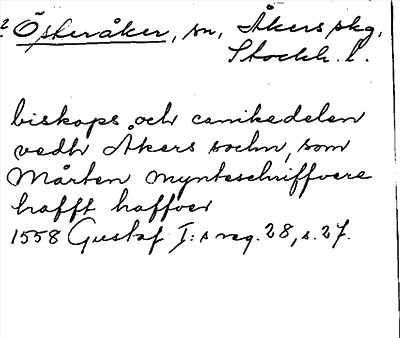 2 Österåker, sn, Åkers skg.
Stockh. l.
biskops och canikedelen
vedh Åkers sochn, som
Mårten mynteschriffvere
hafft haffver
1558 Gustaf I:s reg. 28, s. 27.